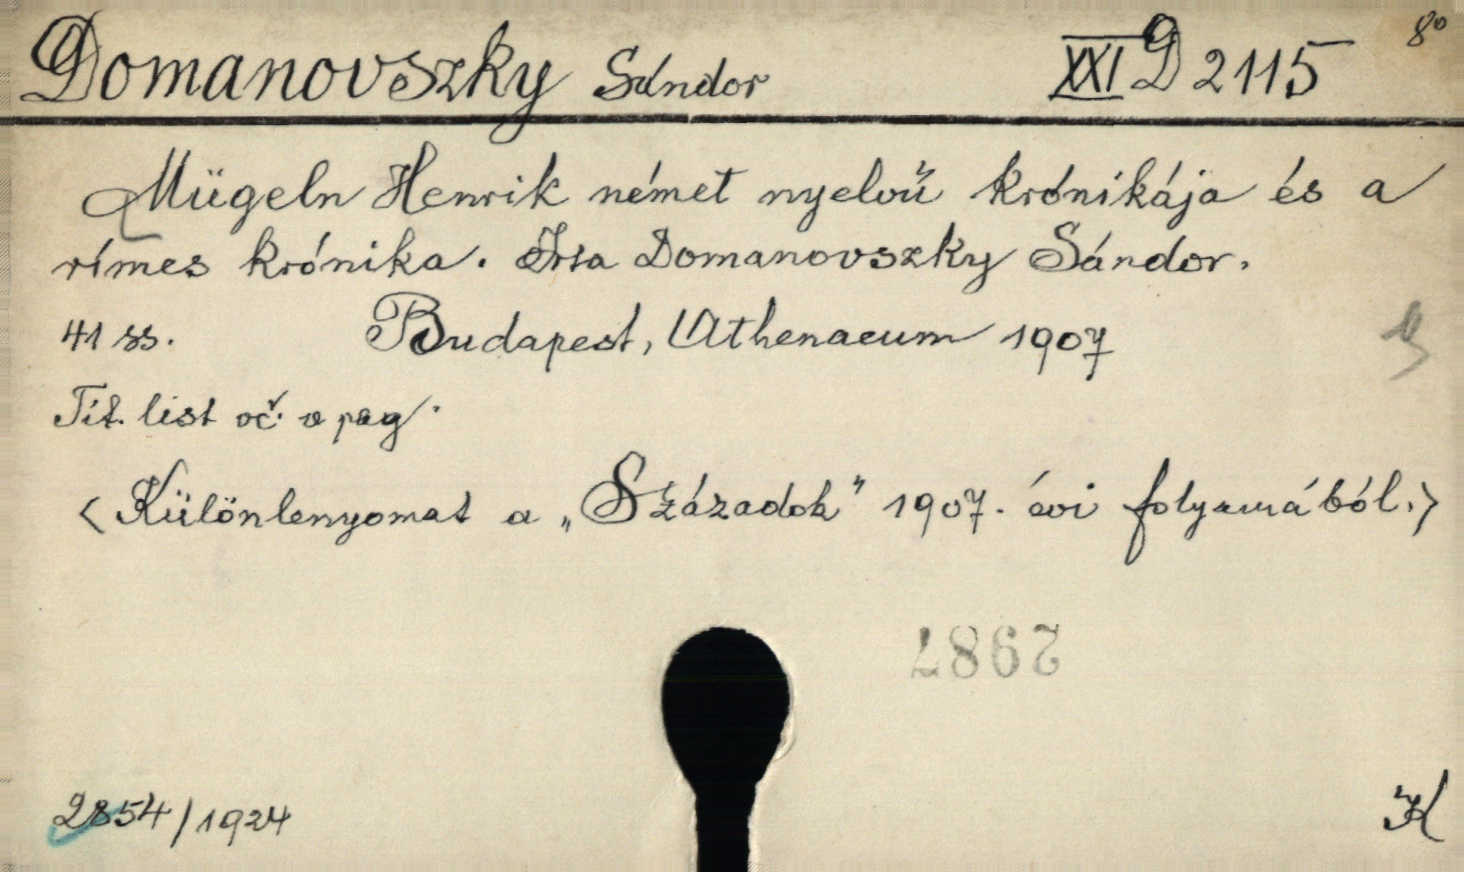 Domanovszky Sándor XXI D 2115 8°
Mügeln Henrik német nyelvű krónikája és a
rímes krónika. Irta Domanovszky Sándor.
41 ss. Budapest, Athenaeum 1907
Tit. list oč. v pag.
<Különlenyomat a „Századok" 1907. évi folyamából.>
2987
2854/1924